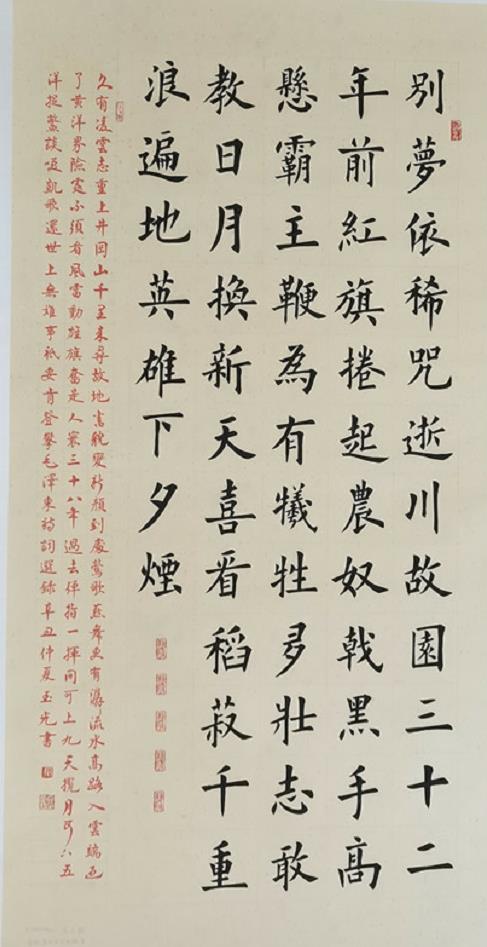 別夢依稀咒逝川故園三十二
年前紅旗捲起農奴戟黑手高
懸霸主鞭為有犧牲多壯志敢
教日月換新天喜看稻菽千重
浪遍地英雄下夕煙
久有凌雲志重上井岡山千里來尋故地舊貌變新顏到處鶯歌燕舞更有潺潺流水高路入雲端過
了黃洋界險處不須看風雷動旌旗奮是人寰三十八年過去彈指一揮間可上九天攬月可下五
洋捉鱉談笑凱歌還世上無難事祇要肯登攀毛澤東詩詞選錄辛丑仲夏玉先書